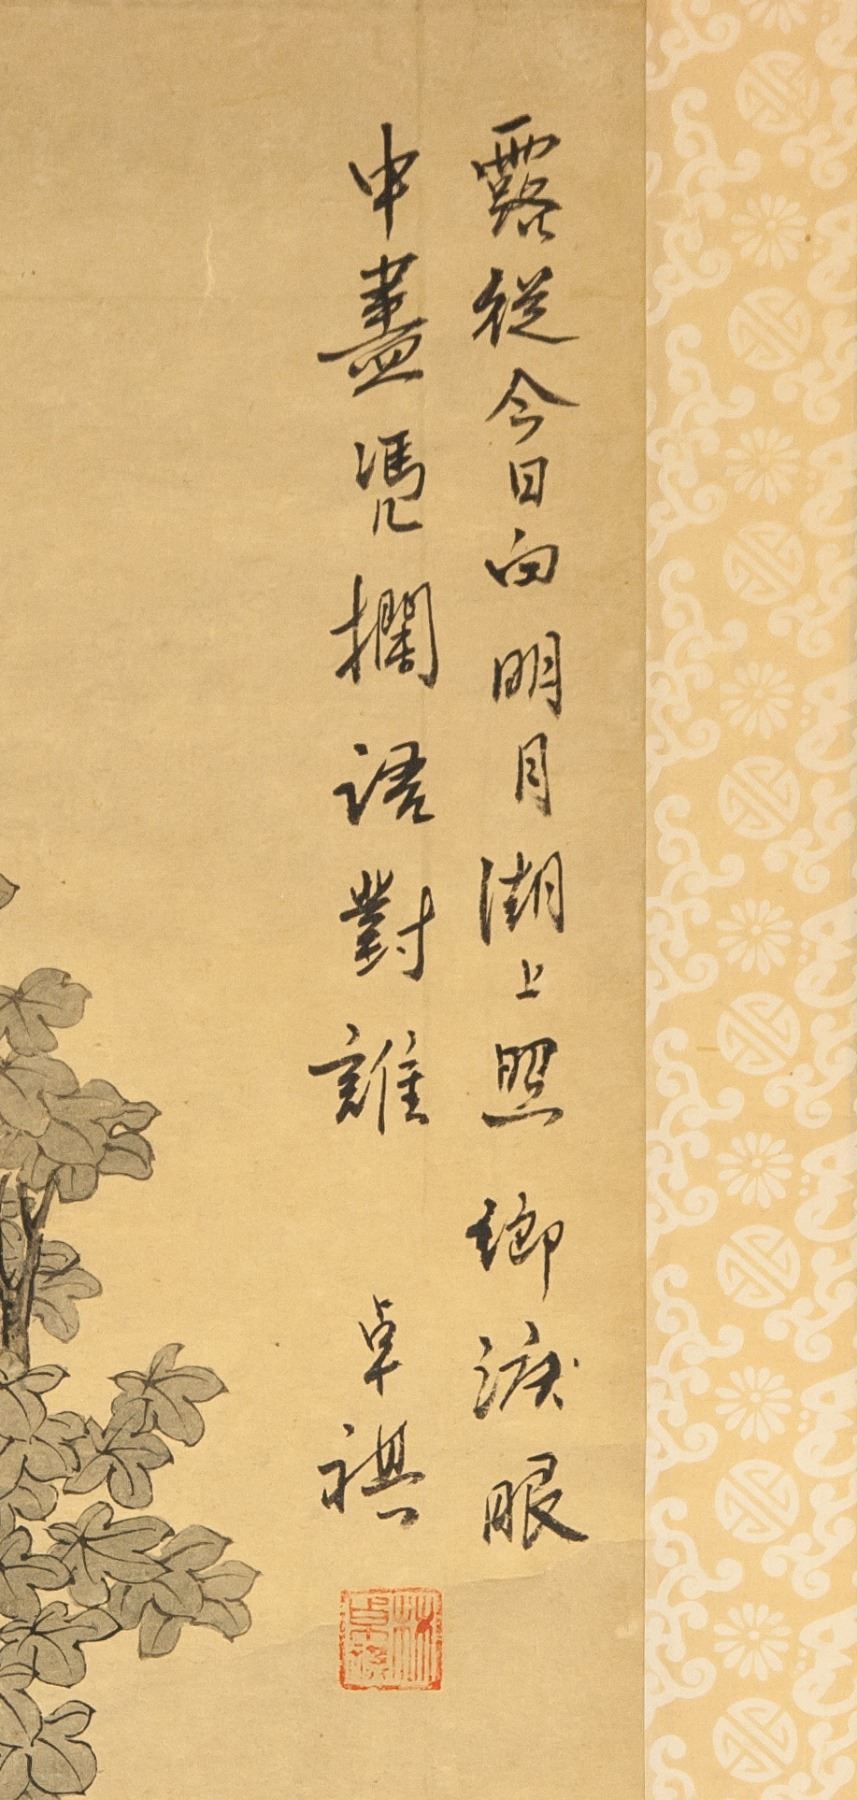 露從今日白明月湖上照鄉淚眼
中盡凴欄語對誰
卓祺